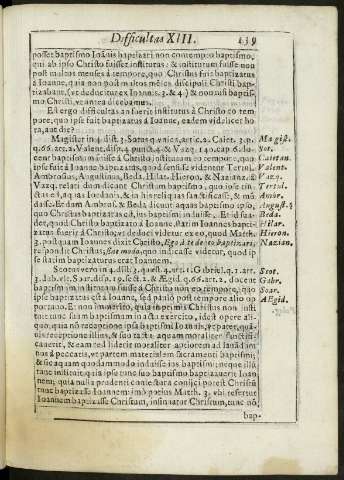 Difficultas XIII. 139
posset baptismo Ioãnis baptizari non contempto baptismo,
qui ab ipso Christo fuisset institutus: & institutum fuisse non
post multos menses à tempore, quo Christus fuit baptizatus
à Ioanne, cùm non post multos méses discipuli Christi bap-
tizabant, vt deducitur ex Ioannis. 3. & 4. & non suo baptis-
mo Christi, vt antea dicebamus.
Est ergo difficultas an fuerit institutus à Christo eo tem-
pore, quo ipse fuit baptizatus à Ioanne, eadem videlicet ho-
ra, aut die?
Magister in 4. dist. 3. Sotus q. vnica, artic. 2. Caiet. 3. p.
q. 66. art. 2. Valent. disp. 4. punct. 4. & Vazq. 140. cap. 6. do-
cent baptismum fuisse à Christo institutum eo tempore, quo
ipse fuit à Ioanne baptizatus, quod sensisse videntur Tertul.
Ambrosius, Augustinus, Beda. Hilar. Hieron. & Nazianz.
Vazq. relati dum dicant Christum baptismo, quo ipse tin-
ctus est, aquas Iordanis, & in his reliquas sanctificasse, & mũ-
dasse. Et dum Ambros. & Beda dicunt aquas baptismo ipso,
quo Christus baptizatus est, ius baptismi induisse. Et id sua-
det, quod Christo baptizato à Ioanne, statim Ioannes bapti-
zatus fuerit à Christo; vt deduci videtur ex eo, quod Matth.
3. postquam Ioannes dixit Christo, Ego à te debeo baptizari,
respondit Christus, sine modo, quo indicasse videtur, quod ip-
se statim baptizaturus erat Ioannem.
Scotus verò in 4. dist. 3. quæst. 4. art. 1. Gabriel. q. 1. art.
3. dub. vlt. Soar. disp. 19. sect. 2. & Ægid. q. 66. art. 2. docent
baptismum institutum fuisse à Christo non eo tempore, quo
ipse baptizatus est à Ioanne, sed paulò post tempore alio op-
portuno. Et non immeritò, quia inprimis Christus non insti-
tuit tunc suum baptismum in actu exercito, idest opere ali-
quo, quia nõ receptione ipsa baptismi Ioannis,
nos à peccatis, vt partem materialem sacramenti baptismi;
& sic aquam quodammodo induisse ius baptismi: neque illũ
tunc instituit, quia ipse tunc suo baptismo baptizauerit Ioan-
nem; quia nulla prudenti coniectura conijci poterit Christũ
tunc baptizasse Ioannem: imò potius Matth. 3. vbi refertur
Ioannem baptizasse Christum, insinuatur Christum, tunc nõ
bap-
Magist.
Sot.
Caietan.
Valent.
Vazq.
Tertul.
Ambr.
August.
Beda.
Hilar.
Hieron.
Nazian.
Scot.
Gabr.
Soar.
Ægid.